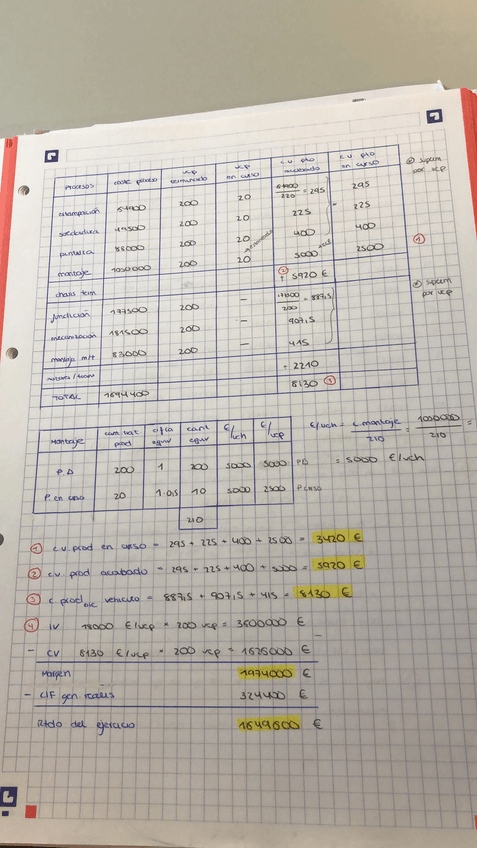 Procesos coste proceso ucp terminado ucp en curso c.v pto acabado c.v pto en curso
estampación 64900 200 20 64900/220 = 295 295
soldadura 49500 200 20 225 225
pintura 88000 200 20 400 400
montaje 1050000 200 20 5000 2500
chasis term 5920 €
fundición 177500 200 - 177500/200 = 887,5
mecanización 181500 200 - 907,5
montaje m/t 83000 200 - 415
= 2210
TOTAL 1694400 8130 ③
① supiem por ucp
Montaje cant tat prod c/fca equiv cant equiv €/uch €/ucp
P.A 200 1 200 5000 5000 PA
P. en curso 20 1·0,5 10 5000 2500 P curso
210
€/uch = c. montaje / 210 = 1050000 / 210 =
= 5000 €/uch
① c.v. prod en curso = 295 + 225 + 400 + 2500 = 3420 €
② c.v. prod acabado = 295 + 225 + 400 + 5000 = 5920 €
③ c. prod vehiculo = 887,5 + 907,5 + 415 = 8130 €
④ IV 18000 €/ucp × 200 ucp = 3600000 €
- CV 8130 €/ucp × 200 ucp = 1626000 €
Margen 1974000 €
- CIF gen reales 324400 €
Rtdo del ejercicio 1649600 €